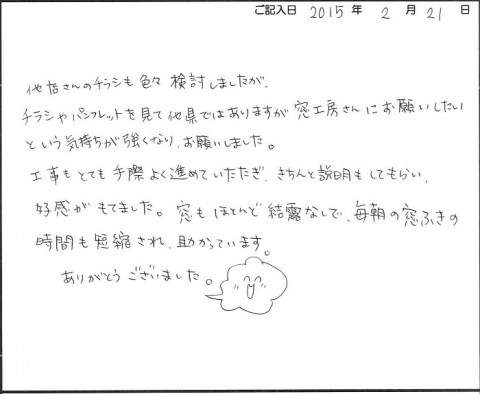 ご記入日 2015年 2月 21日
他店さんのチラシも色々検討しましたが、
チラシやパンフレットを見て他県ではありますが窓工房さんにお願いしたい
という気持ちが強くなり、お願いしました。
工事もとても手際よく進めていただき、きちんと説明もしてもらい、
好感がもてました。窓もほとんど結露なしで、毎朝の窓ふきの
時間も短縮され、助かっています。
ありがとうございました。